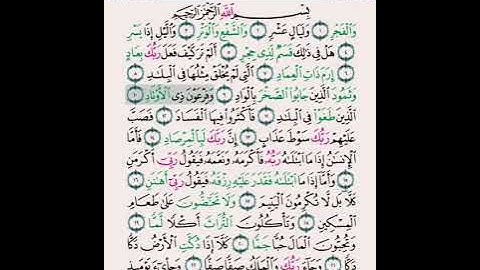 بِسْمِ اللَّهِ الرَّحْمَٰنِ الرَّحِيمِ
وَالْفَجْرِ ١ وَلَيَالٍ عَشْرٍ ٢ وَالشَّفْعِ وَالْوَتْرِ ٣ وَاللَّيْلِ إِذَا يَسْرِ
٤ هَلْ فِي ذَٰلِكَ قَسَمٌ لِذِي حِجْرٍ ٥ أَلَمْ تَرَ كَيْفَ فَعَلَ رَبُّكَ بِعَادٍ
٦ إِرَمَ ذَاتِ الْعِمَادِ ٧ الَّتِي لَمْ يُخْلَقْ مِثْلُهَا فِي الْبِلَادِ ٨
وَثَمُودَ الَّذِينَ جَابُوا الصَّخْرَ بِالْوَادِ ٩ وَفِرْعَوْنَ ذِي الْأَوْتَادِ ١٠
الَّذِينَ طَغَوْا فِي الْبِلَادِ ١١ فَأَكْثَرُوا فِيهَا الْفَسَادَ ١٢ فَصَبَّ
عَلَيْهِمْ رَبُّكَ سَوْطَ عَذَابٍ ١٣ إِنَّ رَبَّكَ لَبِالْمِرْصَادِ ١٤ فَأَمَّا
الْإِنسَانُ إِذَا مَا ابْتَلَاهُ رَبُّهُ فَأَكْرَمَهُ وَنَعَّمَهُ فَيَقُولُ رَبِّي أَكْرَمَنِ
١٥ وَأَمَّا إِذَا مَا ابْتَلَاهُ فَقَدَرَ عَلَيْهِ رِزْقَهُ فَيَقُولُ رَبِّي أَهَانَنِ ١٦
كَلَّا بَل لَّا تُكْرِمُونَ الْيَتِيمَ ١٧ وَلَا تَحَاضُّونَ عَلَىٰ طَعَامِ
الْمِسْكِينِ ١٨ وَتَأْكُلُونَ التُّرَاثَ أَكْلًا لَّمًّا ١٩
وَتُحِبُّونَ الْمَالَ حُبًّا جَمًّا ٢٠ كَلَّا إِذَا دُكَّتِ الْأَرْضُ دَكًّا
دَكًّا ٢١ وَجَاءَ رَبُّكَ وَالْمَلَكُ صَفًّا صَفًّا ٢٢ وَجِيءَ يَوْمَئِذٍ